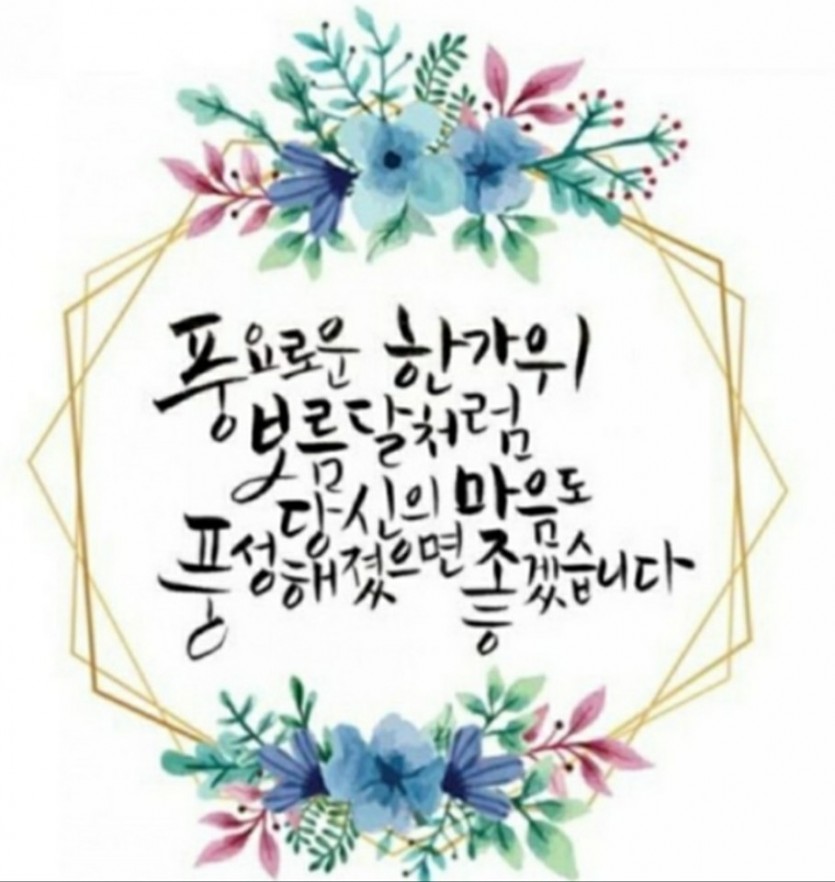 풍요로운 한가위
보름달처럼
당신의 마음도
풍성해졌으면 좋겠습니다